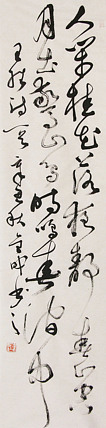 人閒桂花落夜靜春山空
月出驚山鳥時鳴春澗中
王維詩 秋 書